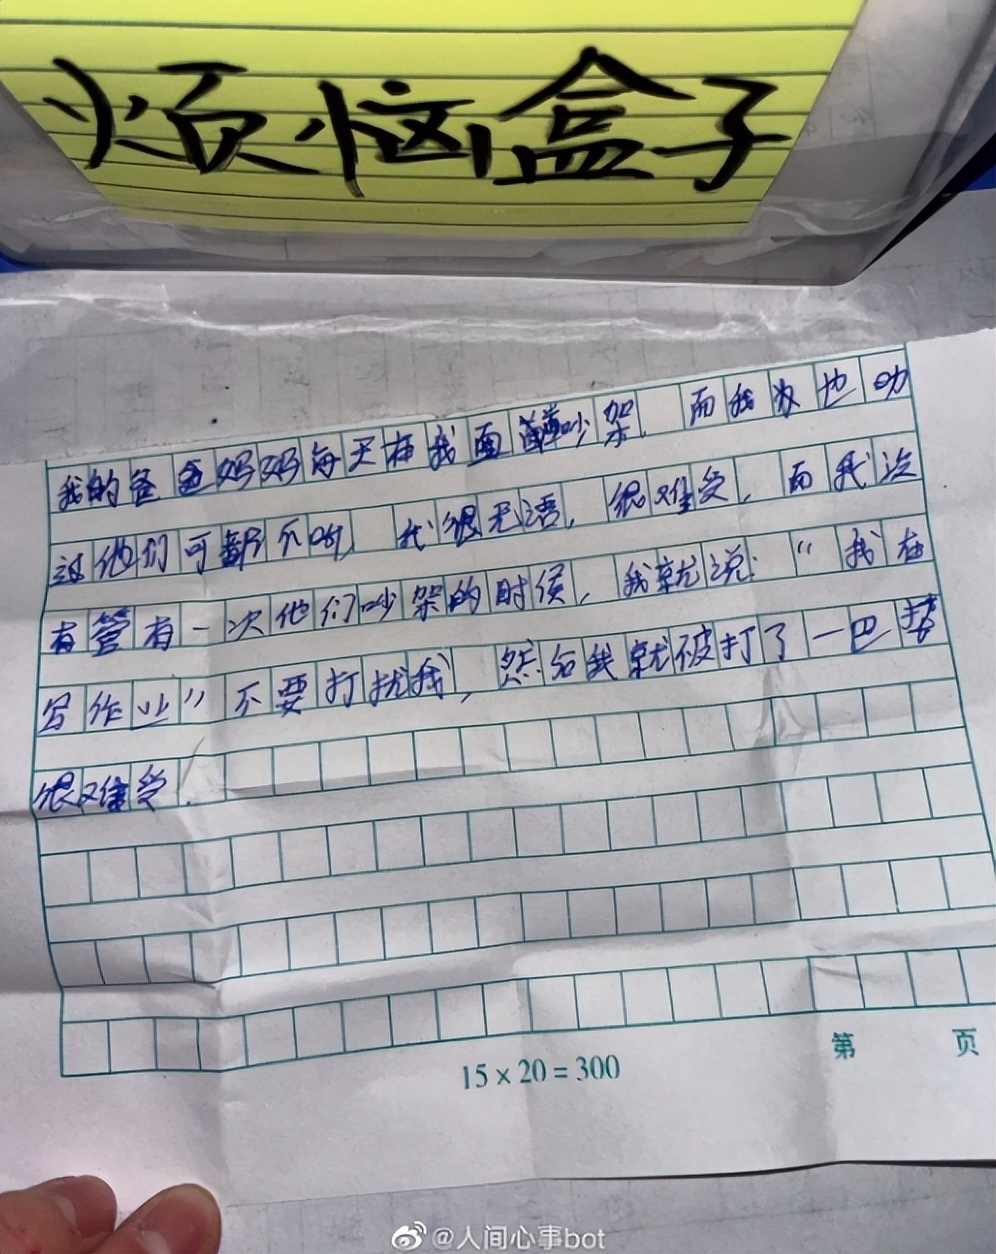 烦恼盒子
我的爸爸妈妈每天在我面前吵架,而我发也劝
过他们可都不听,我很无语,很难受,而我没
有管有一次他们吵架的时候,我就说:“我在
写作业”不要打扰我,然后我就被打了一巴掌
很难受.
15×20=300
第 页
@人间心事bot